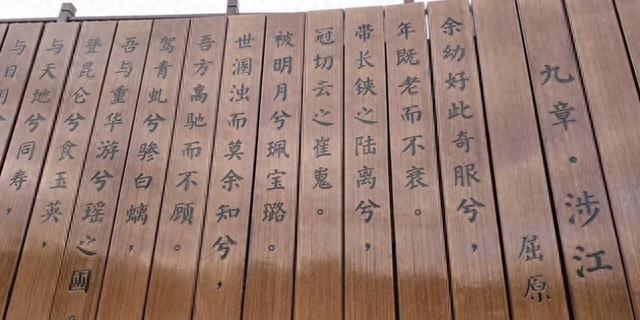 九章·涉江
屈原
余幼好此奇服兮，
年既老而不衰。
带长铗之陆离兮，
冠切云之崔嵬。
被明月兮珮宝璐。
世溷浊而莫余知兮，
吾方高驰而不顾。
驾青虬兮骖白螭，
吾与重华游兮瑶之圃。
登昆仑兮食玉英，
与天地兮同寿，
与日月